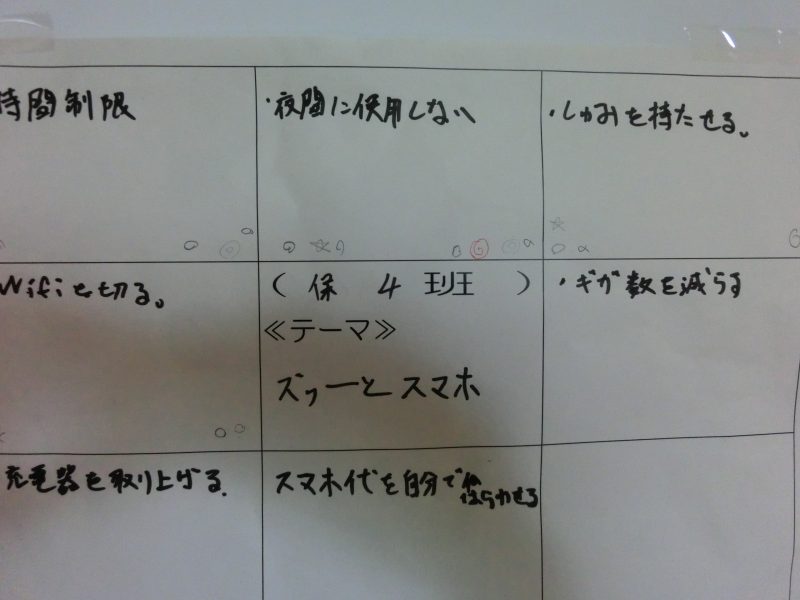 時間制限
・夜間に使用しない
・しかみを持たせる。
Wifiを切る。
( 保 4 班 )
≪テーマ≫
ズゥーとスマホ
・ギガ数を減らす
充電器を取り上げる.
スマホ代を自分で
はらわせる